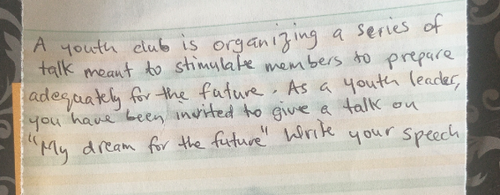 A youth club is organizing a series of
talk meant to stimulate members to prepare
adequately for the future. As a youth leader,
you have been invited to give a talk on
"My dream for the future" Write your speech